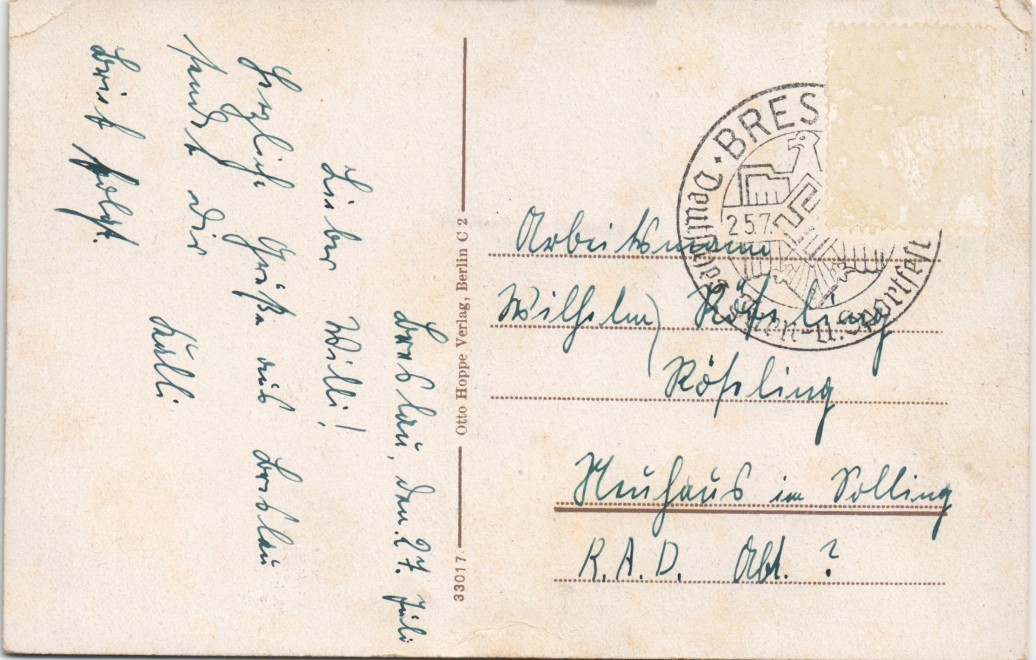 Breslau, den 27. Juli
Lieber Willi!
Herzliche Grüße aus Breslau
sendet dir
Külli
Brief folgt.
Otto Hoppe Verlag, Berlin C 2
33017
BRES
25.7.
Deutsches Turn- u. Sportfest
Arbeitsmann
Wilhelm Rösling
Rößling
Neuhaus im Solling
R.A.D. Abt. ?